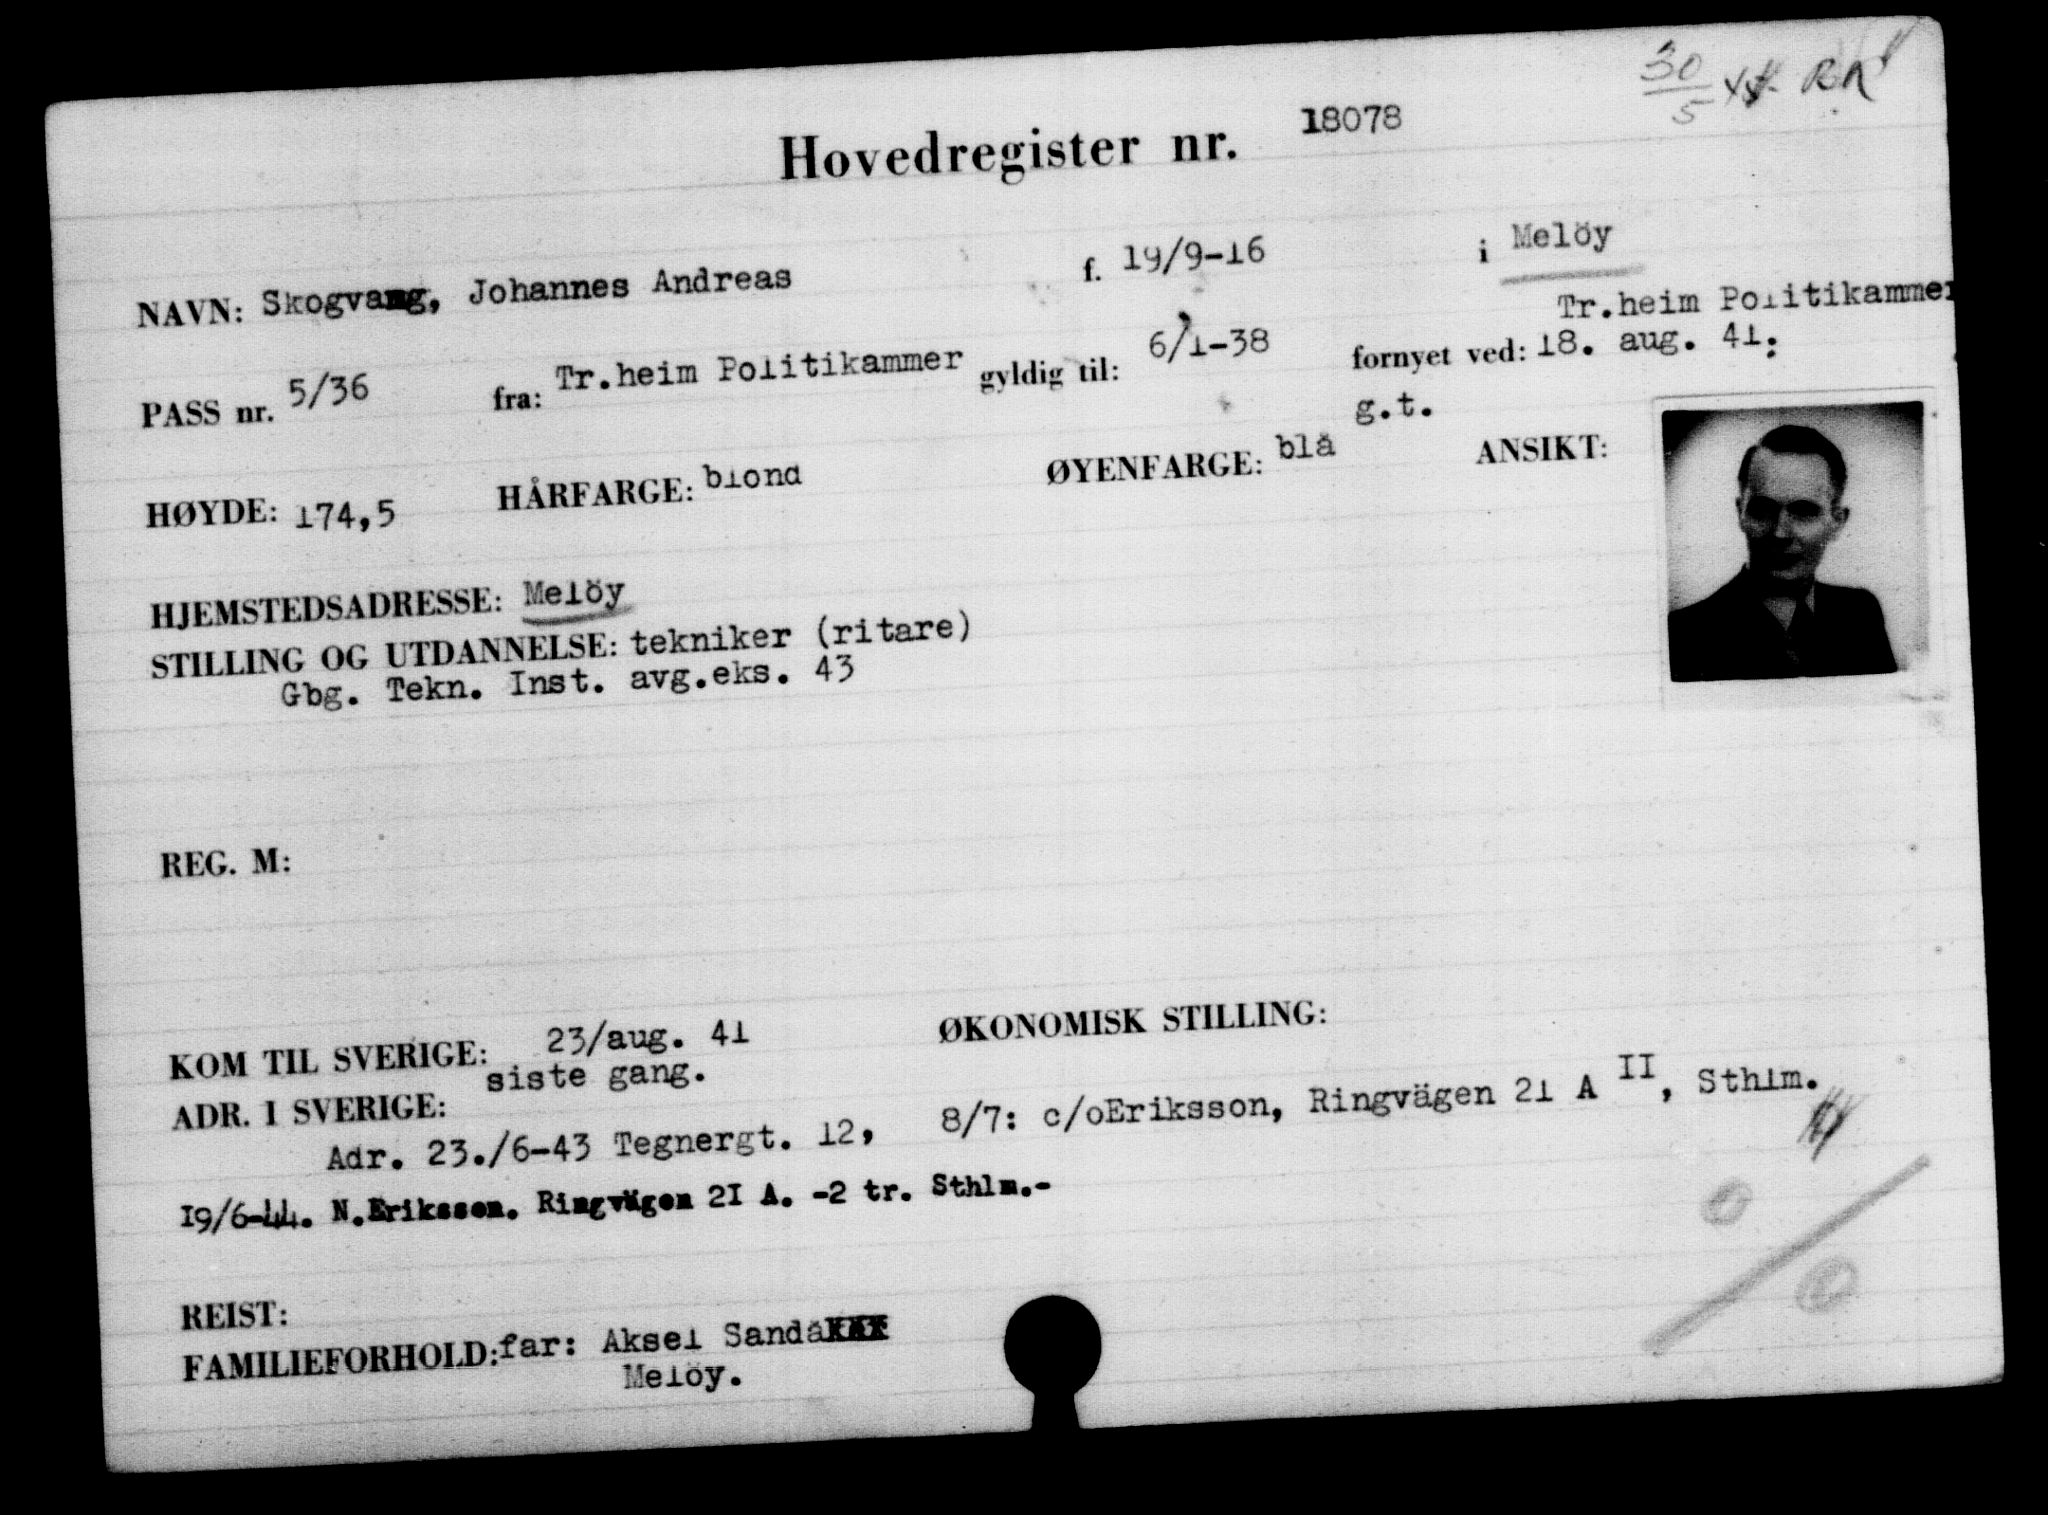 30/5 44 RA
Hovedregister nr. 18078
NAVN: Skogvang, Johannes Andreas f. 19/9-16 i Melöy
Tr.heim Politikammer
PASS nr. 5/36 fra: Tr.heim Politikammer gyldig til: 6/1-38 fornyet ved: 18. aug. 41.
g.t.
HØYDE: 174,5 HÅRFARGE: blond ØYENFARGE: blå ANSIKT:
HJEMSTEDSADRESSE: Melöy
STILLING OG UTDANNELSE: tekniker (ritare)
Gbg. Tekn. Inst. avg.eks. 43
REG. M:
KOM TIL SVERIGE: 23/aug. 41 ØKONOMISK STILLING:
siste gang.
ADR. I SVERIGE:
Adr. 23./6-43 Tegnergt. 12, 8/7: c/oEriksson, Ringvägen 21 A II, Sthlm.
19/6-44. N.Eriksson. Ringvägen 21 A. -2 tr. Sthlm.-
REIST:
FAMILIEFORHOLD: far: Aksel Sandå
Melöy.